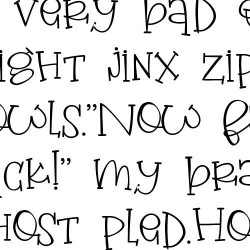 very bad
ight jinx zip
owls."Now f
ck!" my bra
host pled.Ho